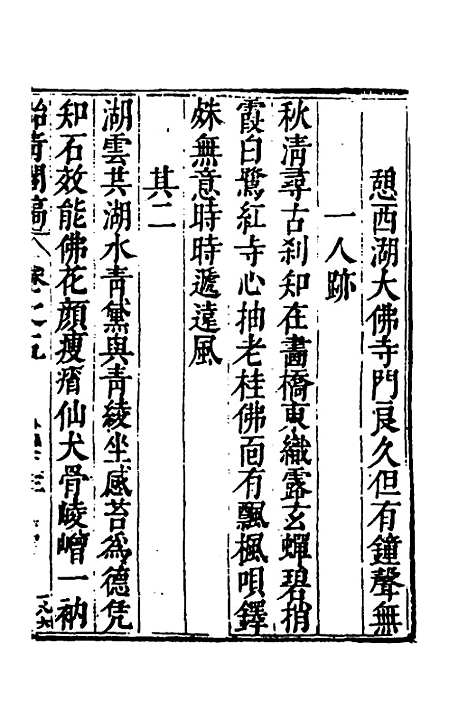 憩西湖大佛寺門良久但有鐘聲無
一人跡
秋清尋古刹知在畵橋東織露玄蟬碧捎
霞白鷺紅寺心抽老桂佛面有飄楓唄鐸
殊無意時時遞遠風
其二
湖雲共湖水青黛與青綾坐感苔為德凭
知石效能佛花顔瘦瘠仙犬骨崚嶒一衲
卷之五